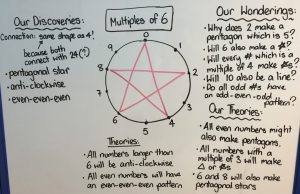 Our Discoveries:
Connection: same shape as 4!
because both
connect with 24(?)
• pentagonal star
• anti-clockwise
• even-even-even
Multiples of 6
0
1
2
3
4
5
6
7
8
9
Theories:
• All numbers larger
than 6 will be anti-clockwise.
• All even numbers will have
an even-even-even pattern.
Our Wonderings:
• Why does 2 make a
pentagon which is 5?
• Will 6 also make a
• Will every # which is a
multiple of 4 make
• Will 10 also be a line?
• Do all odd #s have
an odd-even-odd pattern?
Our Theories:
• All even numbers might
also make pentagons.
• All numbers with a
multiple of 3 will make
• 6 and 8 will also make
pentagonal stars